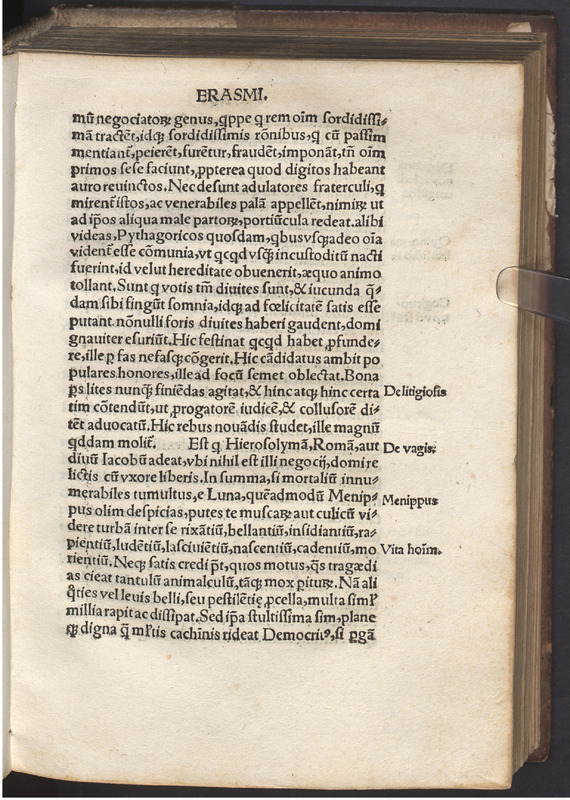 ERASMI.
mū negociatoꝝ genus, qppe q rem oīm sordidissi⸗
mā tractēt, idqꝫ sordidissimis rōnibus, q cū passim
mentiant̃, peierēt, furētur, fraudēt, imponāt, tñ oīm
primos se se faciunt, ꝓpterea quod digitos habeant
auro reuinctos. Nec desunt adulatores fraterculi, q
mirent̃ istos, ac venerabiles palā appellēt, nimiꝝ ut
ad ip̄os aliqua male partoꝝ, portiūcula redeat. alibi
videas, Pythagoricos quosdam, qbus vsqꝫ adeo oīa
vident̃ esse cōmunia, vt qcqd vsqꝫ incustoditū nacti
fuerint, id velut hereditate obuenerit, æquo animo
tollant. Sunt q votis tm̄ diuites sunt, & iucunda q̄⸗
dam sibi fingūt somnia, idqꝫ ad fœlicitatē satis esse
putant nōnulli foris diuites haberi gaudent, domi
gnauiter esuriūt. Hic festinat qcqd habet ꝓfunde⸗
re, ille ꝑ fas nefasqꝫ cōgerit. Hic cādidatus ambit po
pulares honores, ille ad focū semet oblectat. Bona
ꝑs lites nunqꝫ finiēdas agitat, & hinc atqꝫ hinc certa
tim cōtendūt, ut ꝓrogatorē iudicē, & collusorē di⸗
tēt aduocatū. Hic rebus nouādis studet, ille magnū
qddam molit̃. Est q Hierosolymā, Romā, aut
diuū Iacobū adeat, vbi nihil est illi negocij, domi re
lictis cū vxore liberis. In summa, si mortaliū innu⸗
merabiles tumultus, e Luna, quēadmodū Menip⸗
pus olim despicias, putes te muscaꝝ aut culicū vi⸗
dere turbā inter se rixātiū, bellantiū, insidiantiū, ra⸗
pientiū, ludētiū, lasciuiētiū, nascentiū, cadentiū, mo
rientiū. Neqꝫ satis credi pt̄, quos motus, q̄s tragœdi
as cieat tantulū animalculū, tāqꝫ mox ꝑiturꝫ. Nā ali
q̄ties vel leuis belli, seu pestilētię ꝓcella, multa simł
millia rapit ac dissipat. Sed ip̄a stultissima sim, plane
qꝫ digna q̄ młtis cachīnis rideat Democritꝰ, si ꝑgā
De litigiosis
De vagis.
Menippus
Vita hoīm.